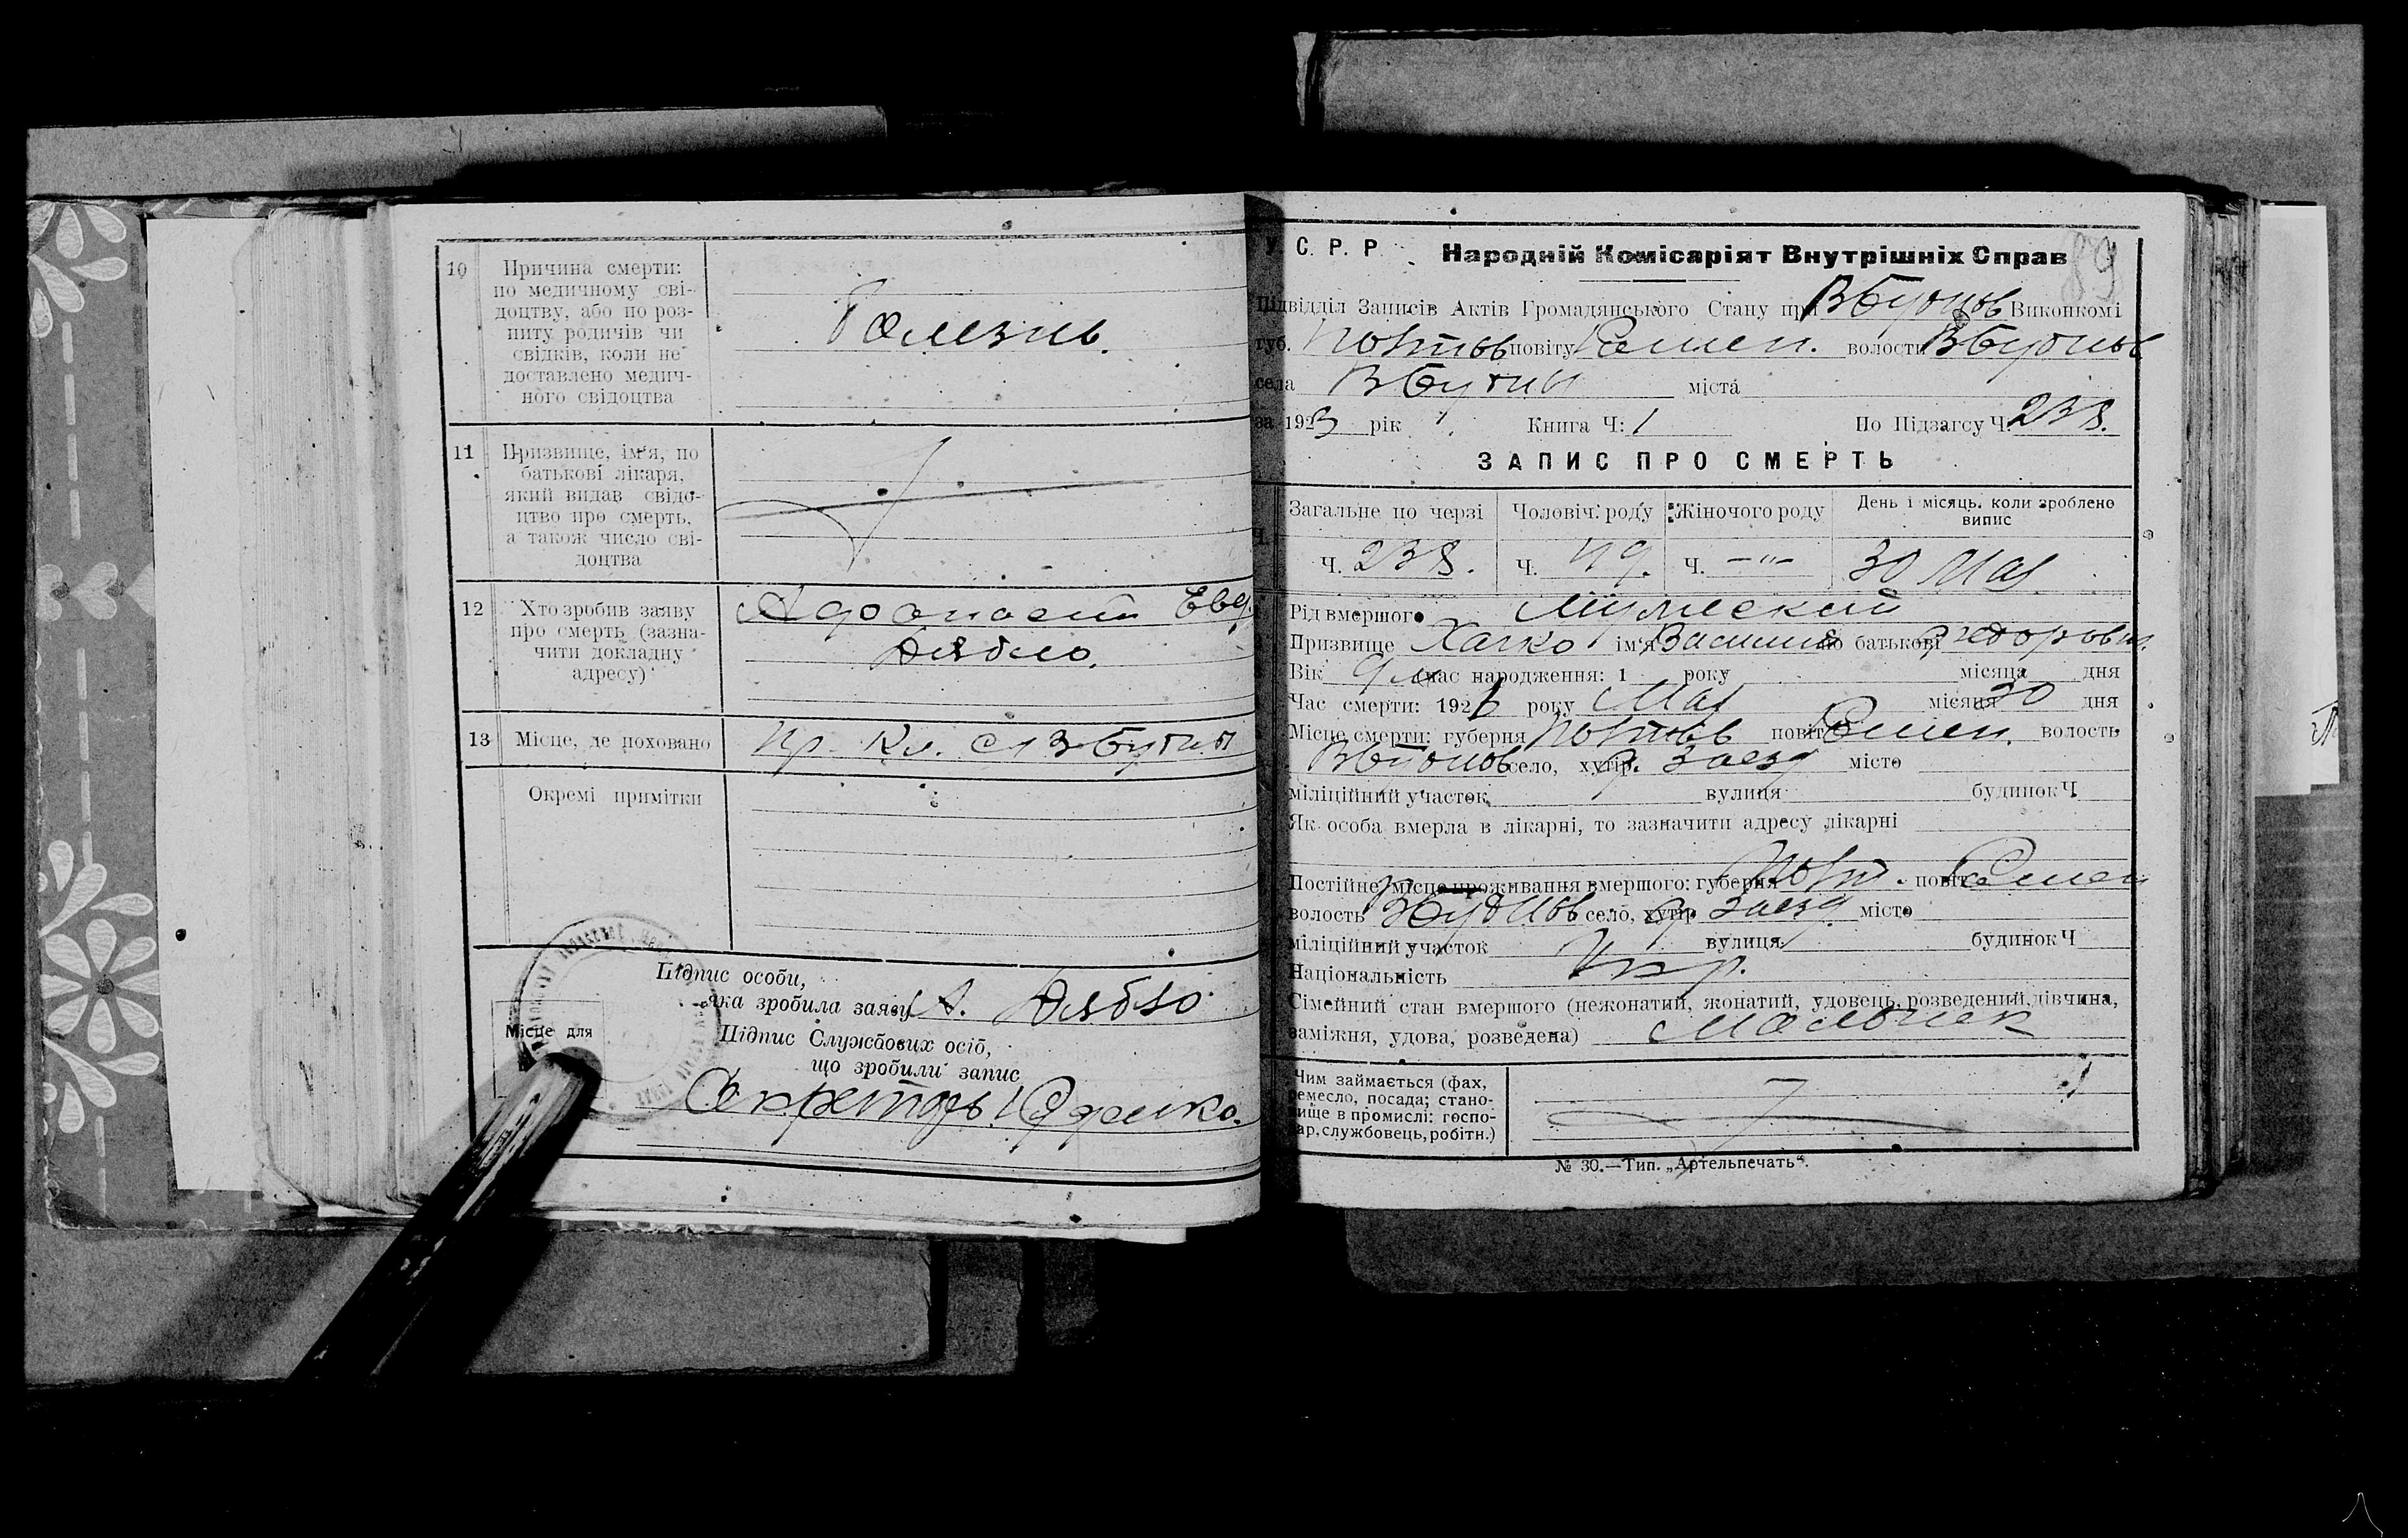 10 Причина смерти:
по медичному сві-
доцтву, або по роз-
питу родичів чи
свідків, коли не
доставлено медич-
ного свідоцтва
Болезнь.
11 Призвище, ім'я, по
батькові лікаря,
який видав свідо-
цтво про смерть,
а також число сві-
доцтва
12 Хто зробив заяву
про смерть (зазна-
чити докладну
адресу)
Афонасий Евд.
Дябло.
13 Місце, де поховано
Окремі примітки
Підпис особи,
яка зробила заяву А. Дябло
Місце для
Підпис Службових осіб,
що зробили запис
Секретарь
У. С. Р. Р. Народній Комісаріят Внутрішніх Справ
89
Підвідділ Записів Актів Громадянського Стану при Виконкомі
губ. Полтав повіту Ромен. волости
села міста
за 1923 рік Книга Ч: 1 По Підзагсу Ч. 238.
ЗАПИС ПРО СМЕРТЬ
Загальне по черзі Чоловіч. роду Жіночого роду День і місяць, коли зроблено
випис
Ч. 238. Ч. 119. Ч. —"— 30 Мая
Рід вмершого Мужеский
Призвище Хачко ім'я Василий по батькові Федоров
Вік 9 м час народження: 1 року місяця дня
Час смерти: 1923 року Мая місяця 30 дня
Місце смерти: губерня Полтав повіт Ромен. волость
село, хутір. Заезд місто
міліційний участок вулиця будинок Ч
Як особа вмерла в лікарні, то зазначити адресу лікарні
Постійне місце проживання вмершого: губерня Полт. повіт Ромен
волость село, хутір Заезд місто
міліційний участок вулиця будинок Ч
Національність Укр.
Сімейний стан вмершого (нежонатий, жонатий, удовець, розведений, дівчина,
заміжня, удова, розведена) Мальчик
Чим займається (фах,
ремесло, посада; стано-
вище в промислі: госпо-
дар, службовець, робітн.)
№ 30.—Тип. „Артельпечать".